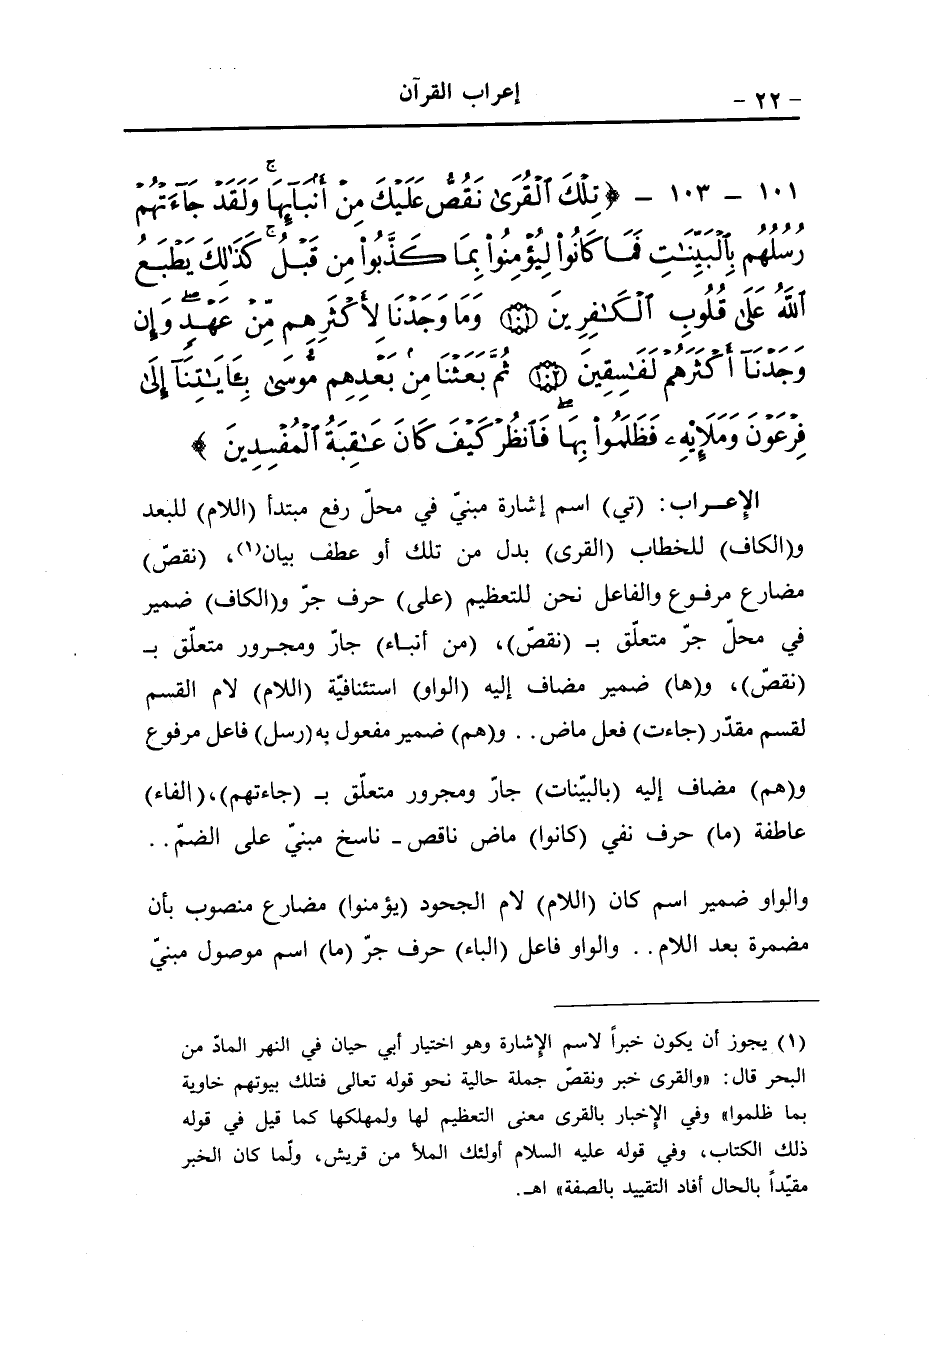 - ٢٢ -
إعراب القرآن
١٠١ - ١٠٣ - ﴿ تِلْكَ ٱلْقُرَىٰ نَقُصُّ عَلَيْكَ مِنْ أَنۢبَآئِهَا ۚ وَلَقَدْ جَآءَتْهُمْ
رُسُلُهُم بِٱلْبَيِّنَٰتِ فَمَا كَانُوا۟ لِيُؤْمِنُوا۟ بِمَا كَذَّبُوا۟ مِن قَبْلُ ۚ كَذَٰلِكَ يَطْبَعُ
ٱللَّهُ عَلَىٰ قُلُوبِ ٱلْكَٰفِرِينَ ۝١٠١ وَمَا وَجَدْنَا لِأَكْثَرِهِم مِّنْ عَهْدٍ ۖ وَإِن
وَجَدْنَآ أَكْثَرَهُمْ لَفَٰسِقِينَ ۝١٠٢ ثُمَّ بَعَثْنَا مِنۢ بَعْدِهِم مُّوسَىٰ بِـَٔايَٰتِنَآ إِلَىٰ
فِرْعَوْنَ وَمَلَإِيْهِۦ فَظَلَمُوا۟ بِهَا ۖ فَٱنظُرْ كَيْفَ كَانَ عَٰقِبَةُ ٱلْمُفْسِدِينَ ﴾
الإعـراب: (تي) اسم إشارة مبنيّ في محلّ رفع مبتدأ (اللام) للبعد
و(الكاف) للخطاب (القرى) بدل من تلك أو عطف بيان(١)، (نقصّ)
مضارع مرفوع والفاعل نحن للتعظيم (على) حرف جرّ و(الكاف) ضمير
في محلّ جرّ متعلّق بـ (نقصّ)، (من أنباء) جارّ ومجرور متعلّق بـ
(نقصّ)، و(ها) ضمير مضاف إليه (الواو) استئنافيّة (اللام) لام القسم
لقسم مقدّر (جاءت) فعل ماض.. و(هم) ضمير مفعول به (رسل) فاعل مرفوع
و(هم) مضاف إليه (بالبيّنات) جارّ ومجرور متعلّق بـ (جاءتهم)، (الفاء)
عاطفة (ما) حرف نفي (كانوا) ماض ناقص - ناسخ مبنيّ على الضمّ..
والواو ضمير اسم كان (اللام) لام الجحود (يؤمنوا) مضارع منصوب بأن
مضمرة بعد اللام.. والواو فاعل (الباء) حرف جرّ (ما) اسم موصول مبنيّ
(١) يجوز أن يكون خبراً لاسم الإشارة وهو اختيار أبي حيان في النهر المادّ من
البحر قال: «والقرى خبر ونقصّ جملة حالية نحو قوله تعالى فتلك بيوتهم خاوية
بما ظلموا» وفي الإخبار بالقرى معنى التعظيم لها ولمهلكها كما قيل في قوله
ذلك الكتاب، وفي قوله عليه السلام أولئك الملأ من قريش، ولّما كان الخبر
مقيّداً بالحال أفاد التقييد بالصفة» اهـ.